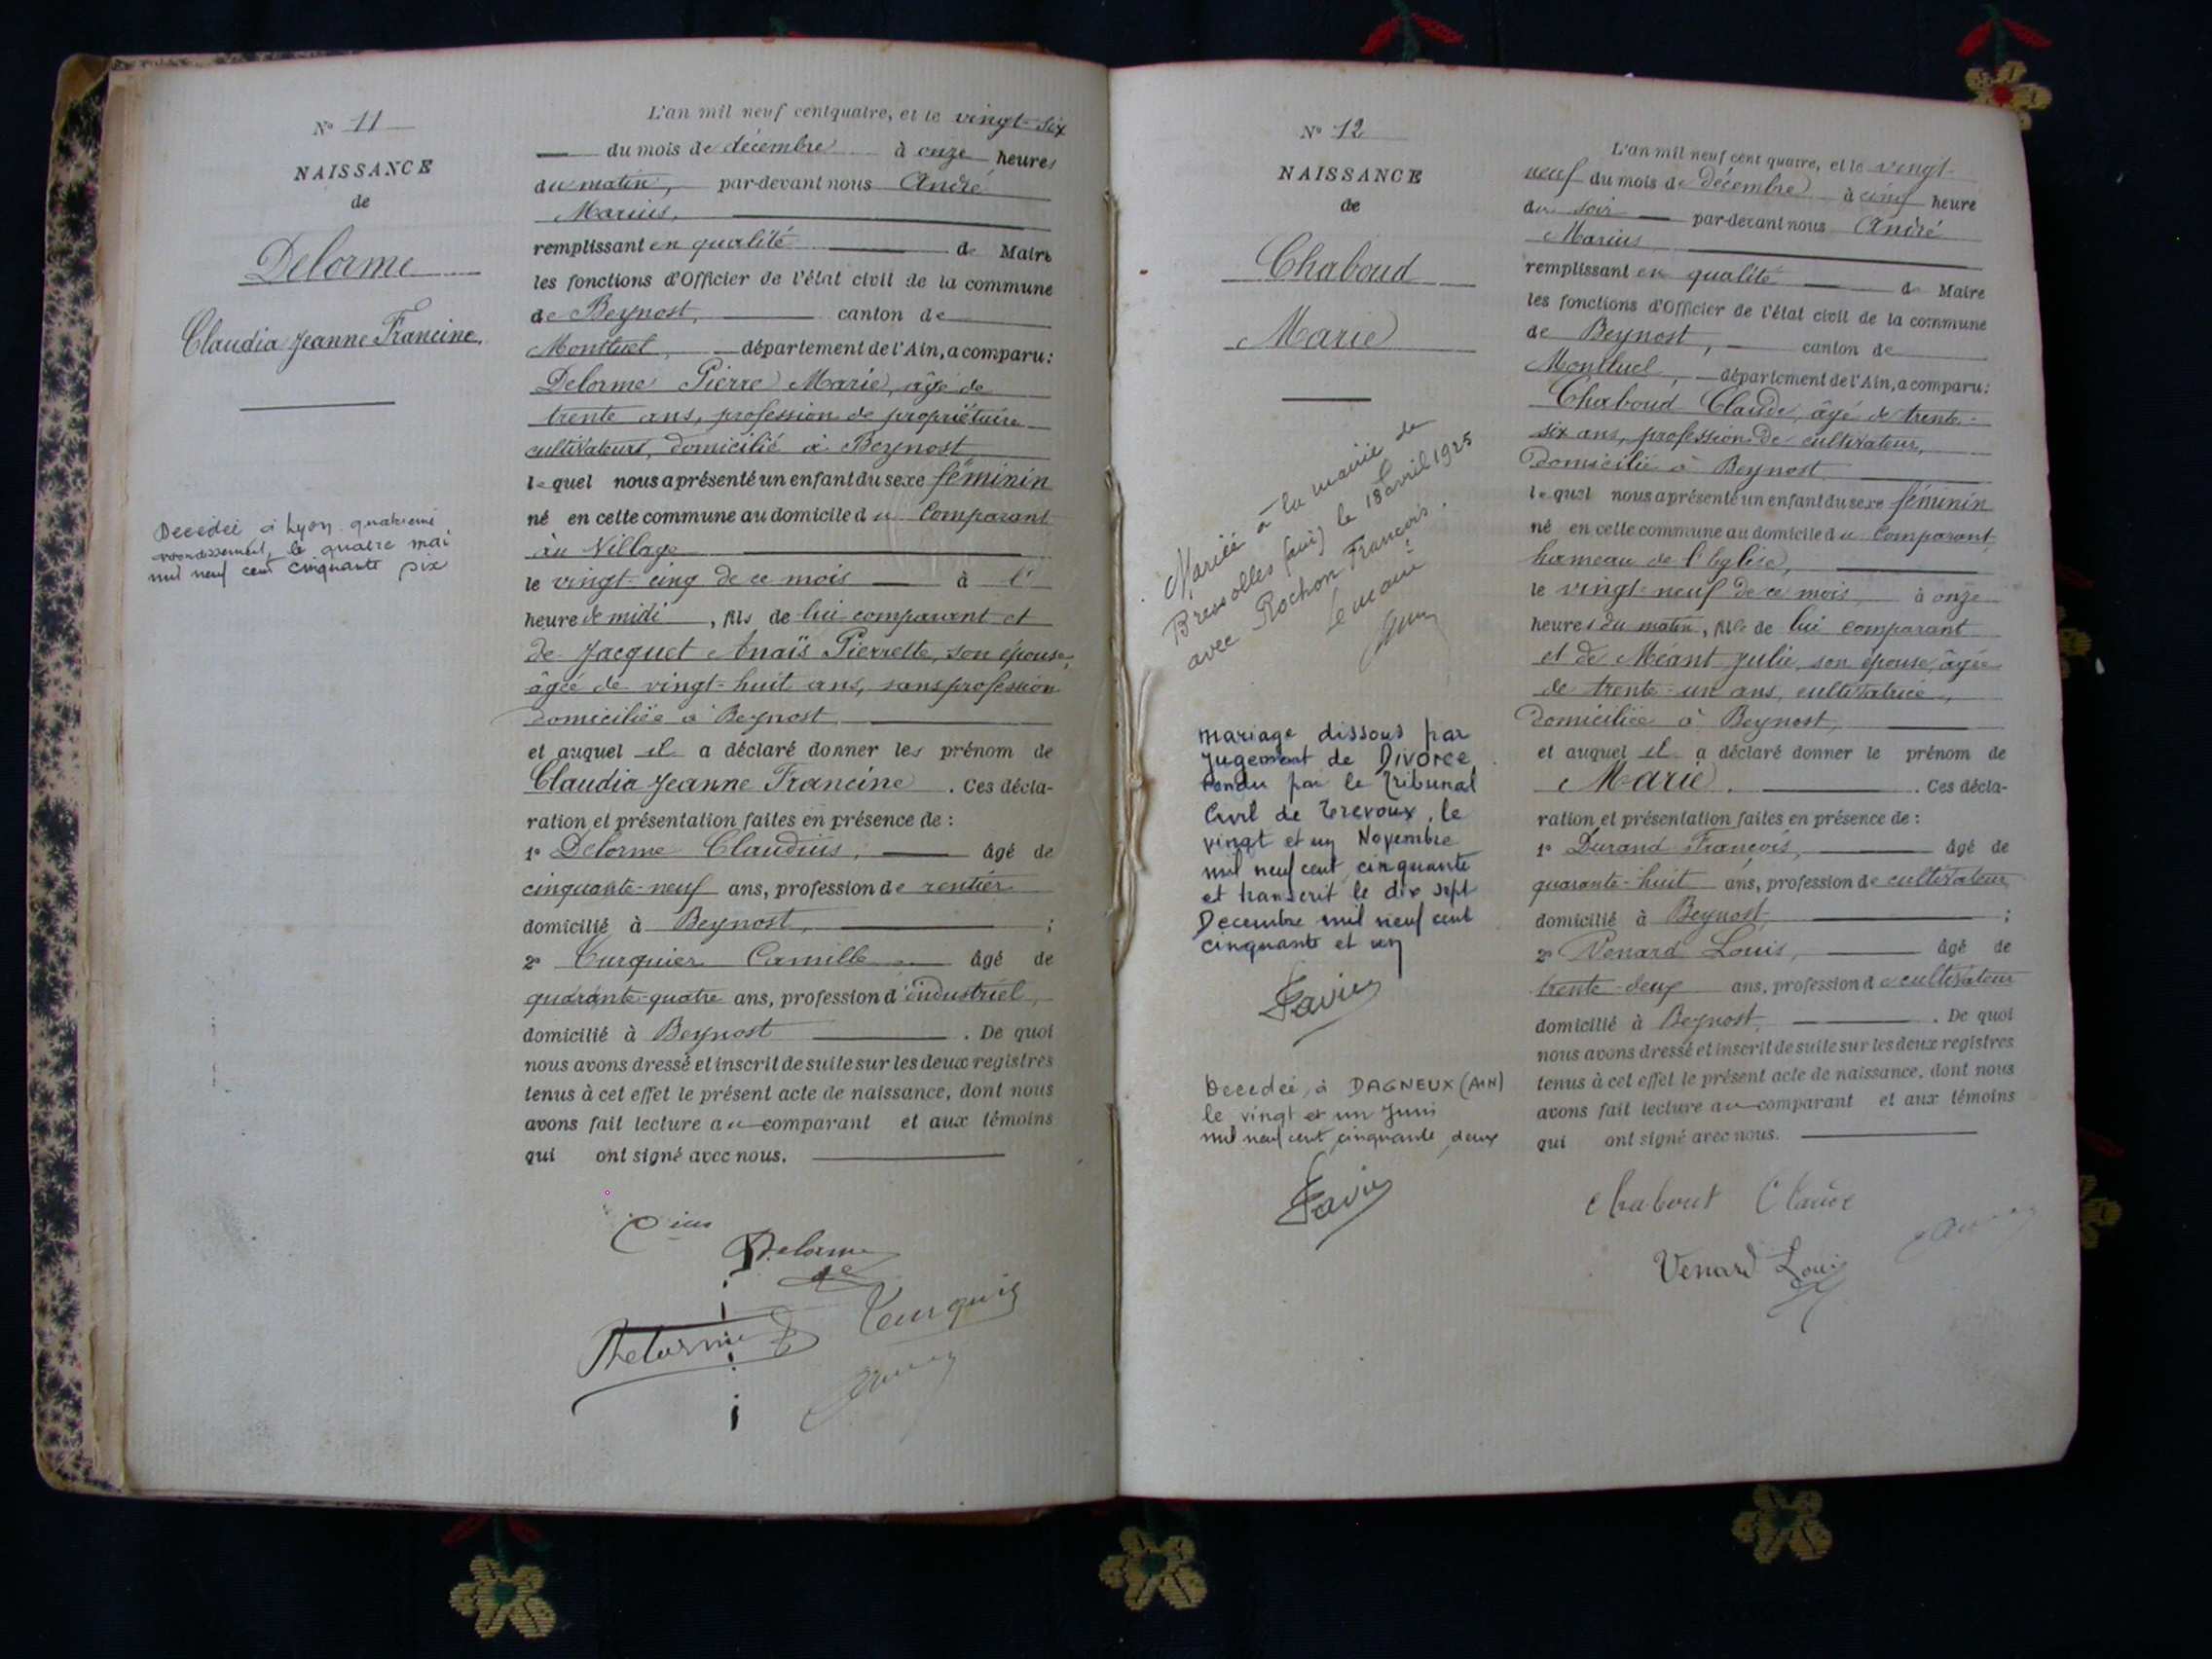 N° 11
NAISSANCE
de
Delorme
Claudia Jeanne Francine.
Decedée à Lyon quatrieme
arrondissement, le quatre mai
mil neuf cent cinquante six
L'an mil neuf cent quatre, et le vingt-six
du mois de décembre à onze heures
du matin, par-devant nous André
Marius,
remplissant en qualité de Maire
les fonctions d'Officier de l'état civil de la commune
de Beynost, canton de
Montluel, département de l'Ain, a comparu:
Delorme Pierre Marie, âgé de
trente ans, profession de propriétaire
cultivateur, domicilié à Beynost
lequel nous a présenté un enfant du sexe féminin
né en cette commune au domicile du Comparant
au Village
le vingt-cinq de ce mois à l'
heure de midi, fils de lui comparant et
de Jacquet Anaïs Pierrette, son épouse,
âgée de vingt-huit ans, sans profession
domiciliée à Beynost.
et auquel il a déclaré donner les prénom de
Claudia Jeanne Francine. Ces décla-
ration et présentation faites en présence de :
1° Delorme Claudius, âgé de
cinquante-neuf ans, profession de rentier
domicilié à Beynost, ;
2° Turquier Camille âgé de
quarante-quatre ans, profession d'industriel,
domicilié à Beynost. De quoi
nous avons dressé et inscrit de suite sur les deux registres
tenus à cet effet le présent acte de naissance, dont nous
avons fait lecture au comparant et aux témoins
qui ont signé avec nous.
Delorme
Delorme
N° 12
NAISSANCE
de
Chaboud
Marie
Mariée à la mairie de
Bressolles (Ain) le 18 avril 1925
avec Rochon François.
Le maire
mariage dissous par
jugement de Divorce
rendu par le Tribunal
Civil de Trevoux, le
vingt et un Novembre
mil neuf cent cinquante
et transcrit le dix sept
Decembre mil neuf cent
cinquante et un
Decedée, à DAGNEUX (AIN)
le vingt et un Juin
mil neuf cent cinquante deux
L'an mil neuf cent quatre, et le vingt-
neuf du mois de Décembre à cinq heure
du soir par-devant nous André
Marius
remplissant en qualité de Maire
les fonctions d'Officier de l'état civil de la commune
de Beynost, canton de
Montluel, département de l'Ain, a comparu:
Chaboud Claude, âgé de trente-
six ans, profession de cultivateur,
Domicilié à Beynost
lequel nous a présenté un enfant du sexe féminin
né en cette commune au domicile du comparant
hameau de l'Eglise,
le vingt-neuf de ce mois, à onze
heures du matin, fils de lui comparant
et de Méant Julie, son épouse, âgée
de trente-un ans, cultivatrice,
Domiciliée à Beynost,
et auquel il a déclaré donner le prénom de
Marie. Ces décla-
ration et présentation faites en présence de :
1° Durand François, âgé de
quarante-huit ans, profession de cultivateur
domicilié à Beynost, ;
2° Venard Louis, âgé de
trente-deux ans, profession de cultivateur
domicilié à Beynost. De quoi
nous avons dressé et inscrit de suite sur les deux registres
tenus à cet effet le présent acte de naissance, dont nous
avons fait lecture au comparant et aux témoins
qui ont signé avec nous.
Chabout Claude
Venard Louis